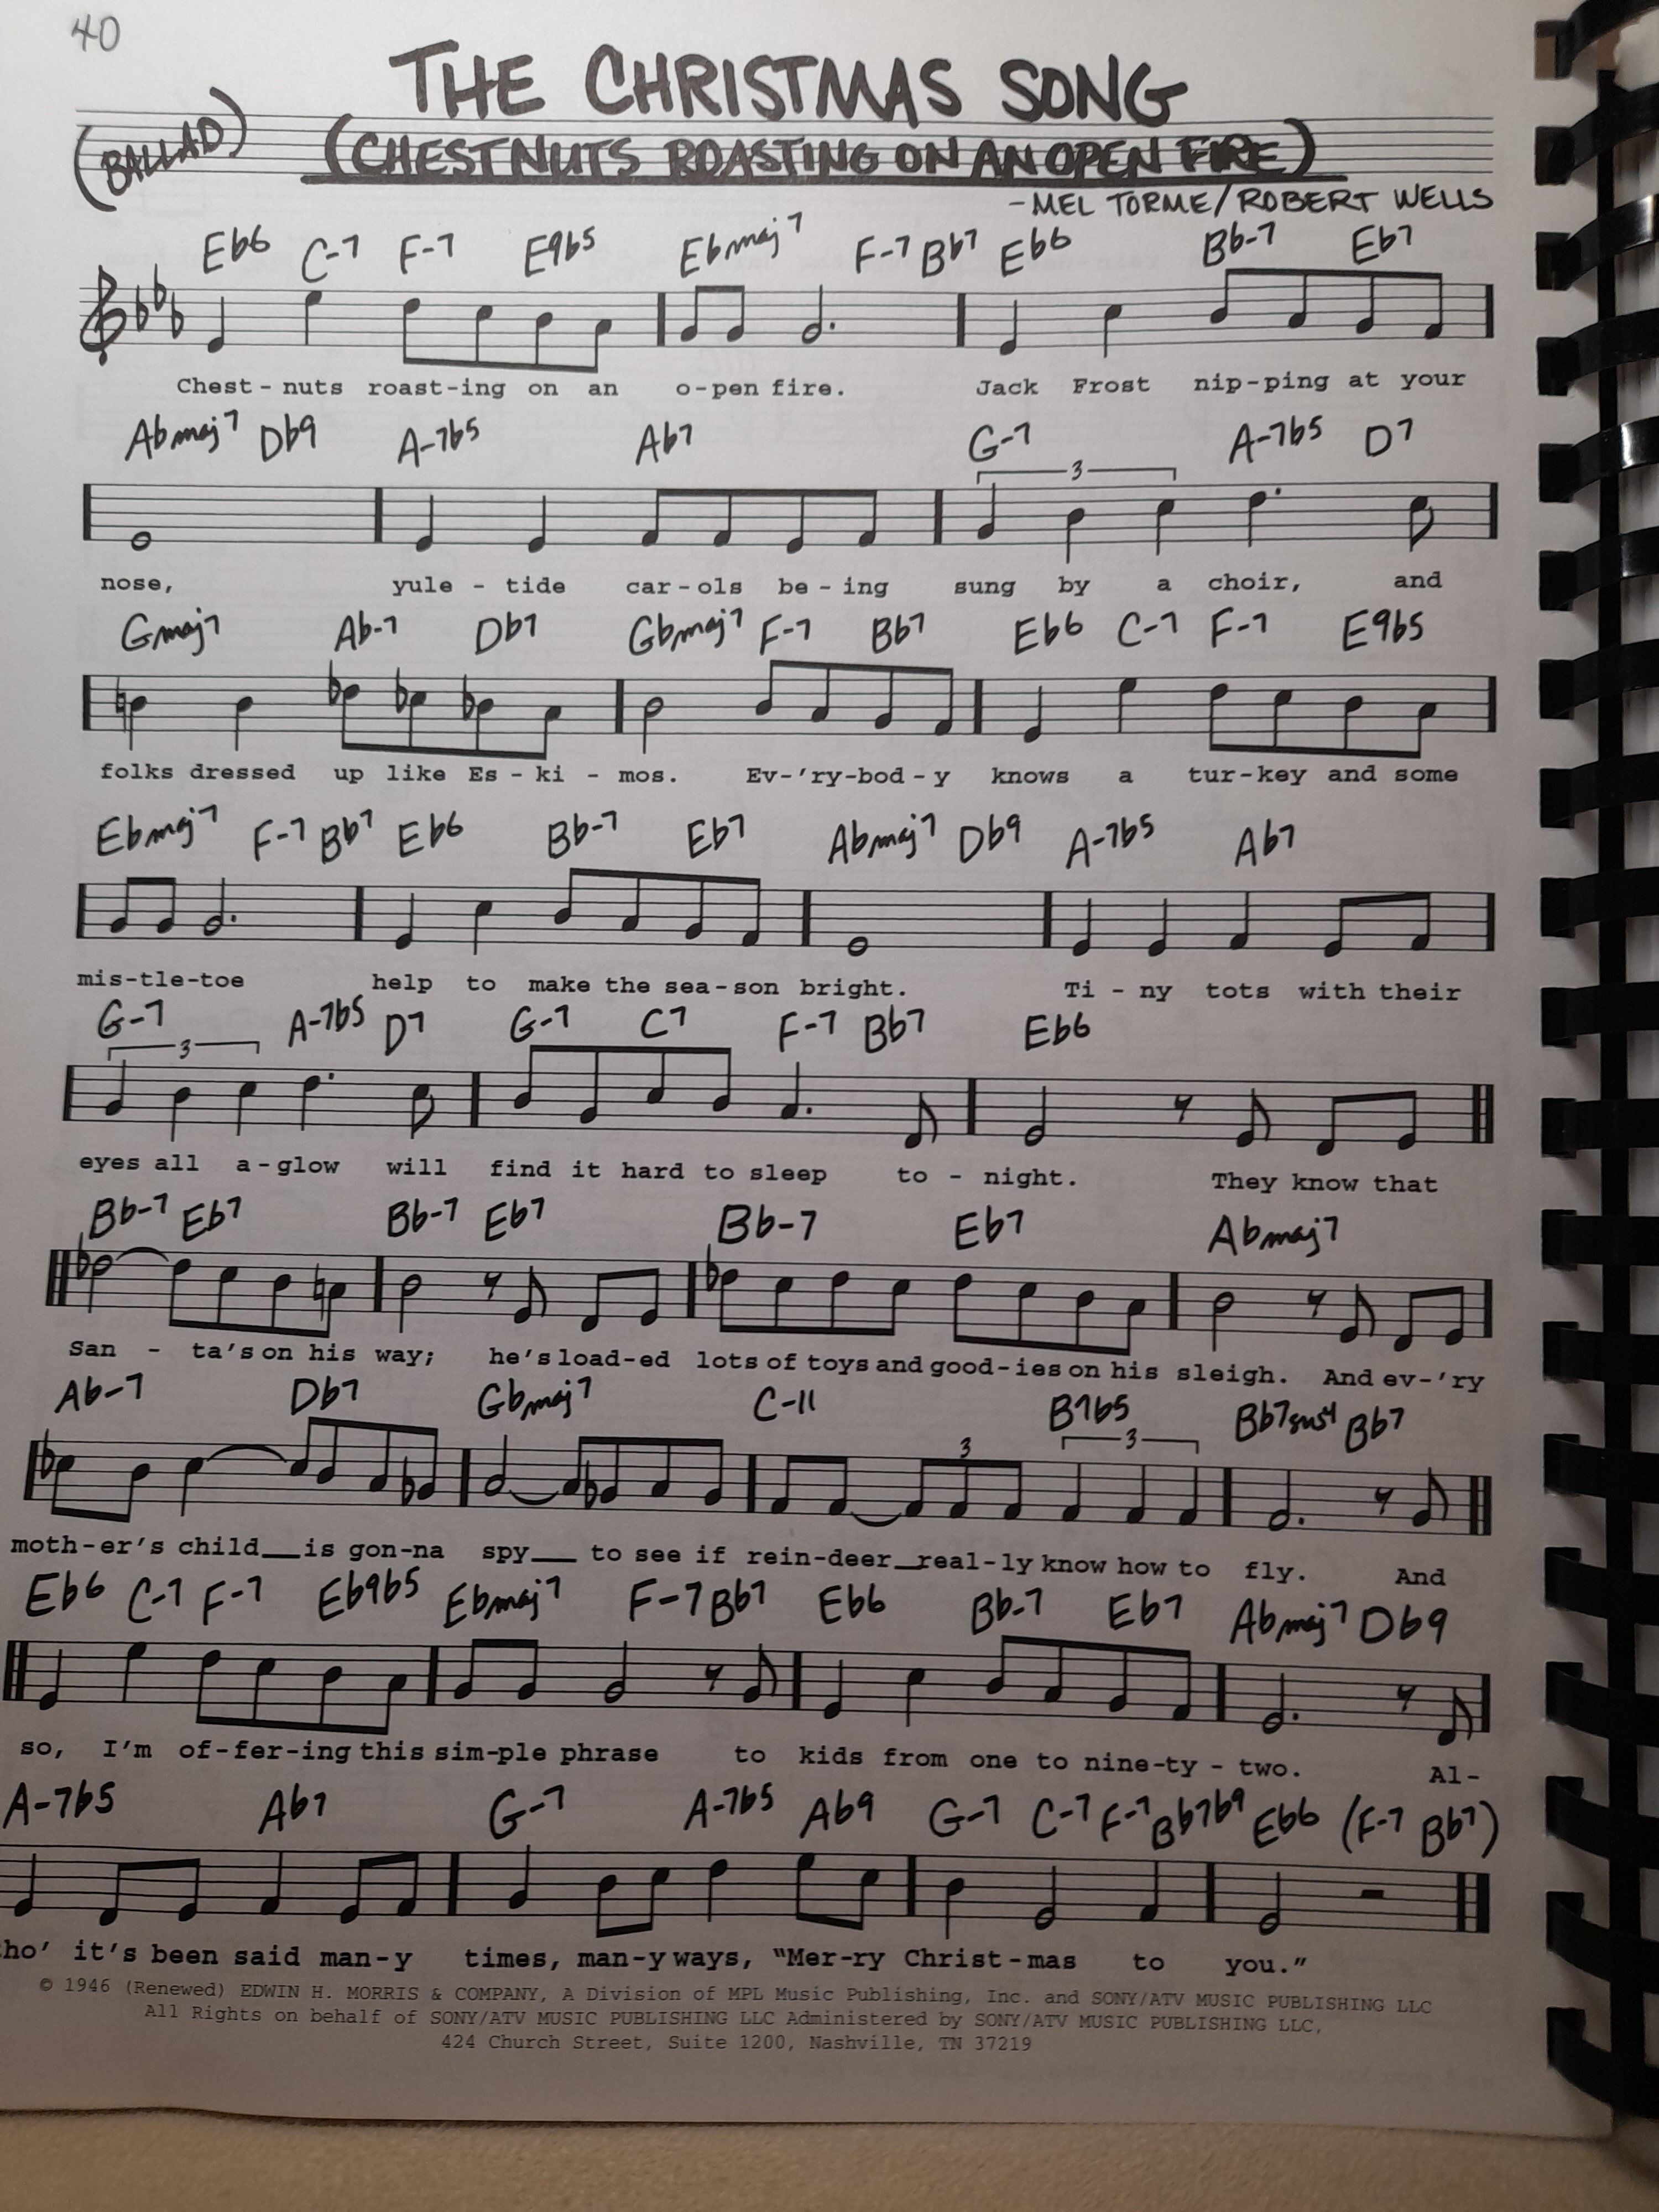 40
THE CHRISTMAS SONG
(BALLAD)
(CHESTNUTS ROASTING ON AN OPEN FIRE)
-MEL TORME/ROBERT WELLS
Eb6 C-7 F-7 E9b5 Ebmaj7 F-7 Bb7 Eb6 Bb-7 Eb7
Chest - nuts roast-ing on an o-pen fire. Jack Frost nip-ping at your
Abmaj7 Db9 A-7b5 Ab7 G-7 A-7b5 D7
3
nose, yule - tide car-ols be-ing sung by a choir, and
Gmaj7 Ab-7 Db7 Gbmaj7 F-7 Bb7 Eb6 C-7 F-7 E9b5
folks dressed up like Es - ki - mos. Ev-'ry-bod-y knows a tur-key and some
Ebmaj7 F-7 Bb7 Eb6 Bb-7 Eb7 Abmaj7 Db9 A-7b5 Ab7
mis-tle-toe help to make the sea-son bright. Ti - ny tots with their
G-7 A-7b5 D7 G-7 C7 F-7 Bb7 Eb6
3
eyes all a-glow will find it hard to sleep to - night. They know that
Bb-7 Eb7 Bb-7 Eb7 Bb-7 Eb7 Abmaj7
San - ta's on his way; he's load-ed lots of toys and good-ies on his sleigh. And ev-'ry
Ab-7 Db7 Gbmaj7 C-11 B7b5 Bb7sus4 Bb7
3 3
moth-er's child__is gon-na spy__ to see if rein-deer_real-ly know how to fly. And
Eb6 C-7 F-7 Eb9b5 Ebmaj7 F-7 Bb7 Eb6 Bb-7 Eb7 Abmaj7 Db9
so, I'm of-fer-ing this sim-ple phrase to kids from one to nine-ty - two. Al-
A-7b5 Ab7 G-7 A-7b5 Ab9 G-7 C-7 F-7 Bb7b9 Eb6 (F-7 Bb7)
ho' it's been said man-y times, man-y ways, "Mer-ry Christ-mas to you."
© 1946 (Renewed) EDWIN H. MORRIS & COMPANY, A Division of MPL Music Publishing, Inc. and SONY/ATV MUSIC PUBLISHING LLC
All Rights on behalf of SONY/ATV MUSIC PUBLISHING LLC Administered by SONY/ATV MUSIC PUBLISHING LLC,
424 Church Street, Suite 1200, Nashville, TN 37219